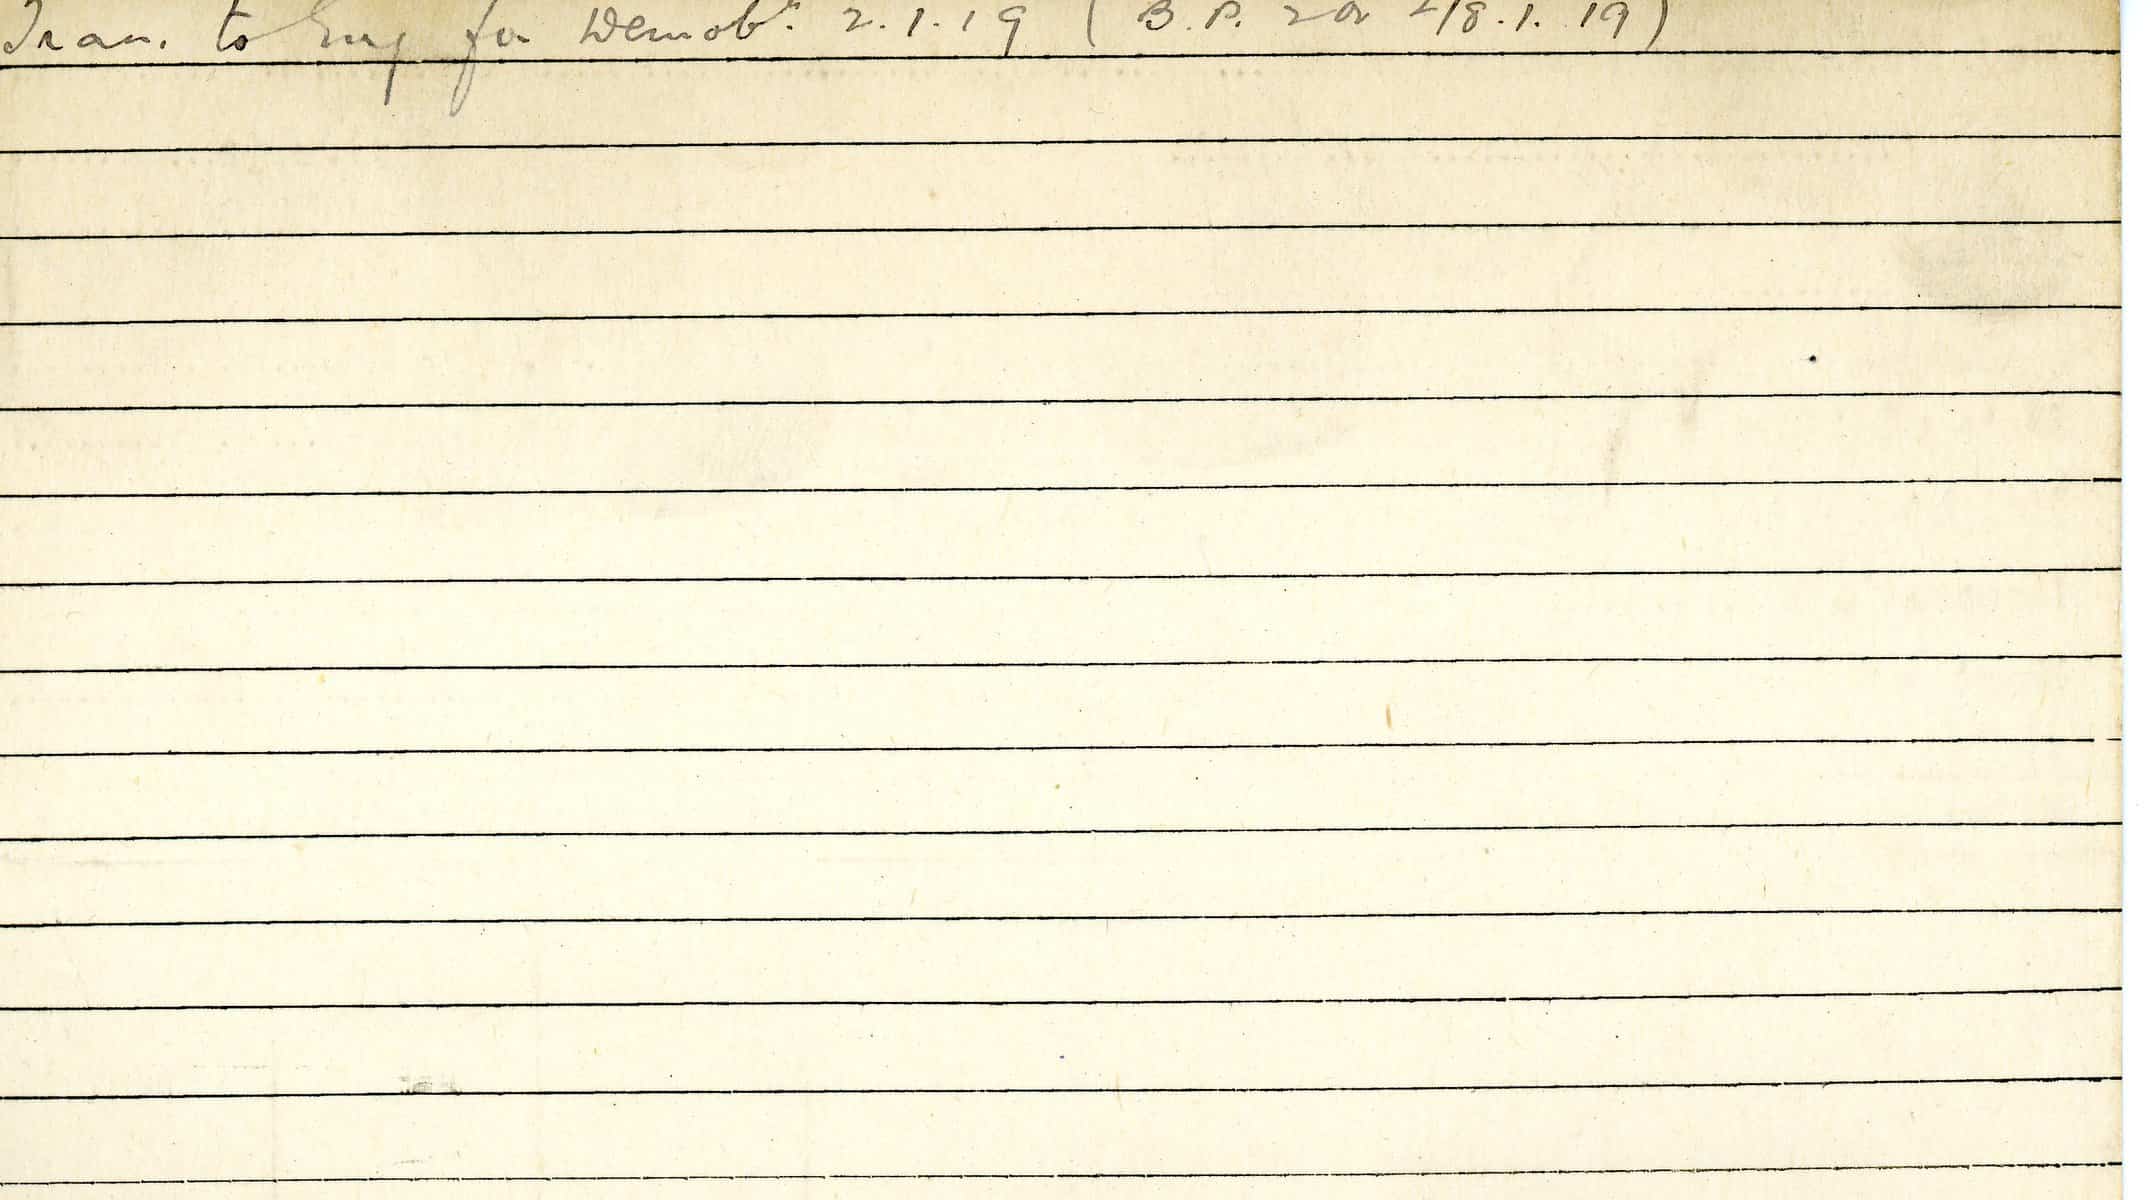 Tran. to Eng for Demobn. 2.1.19 (B.P. 2 18.1.19)